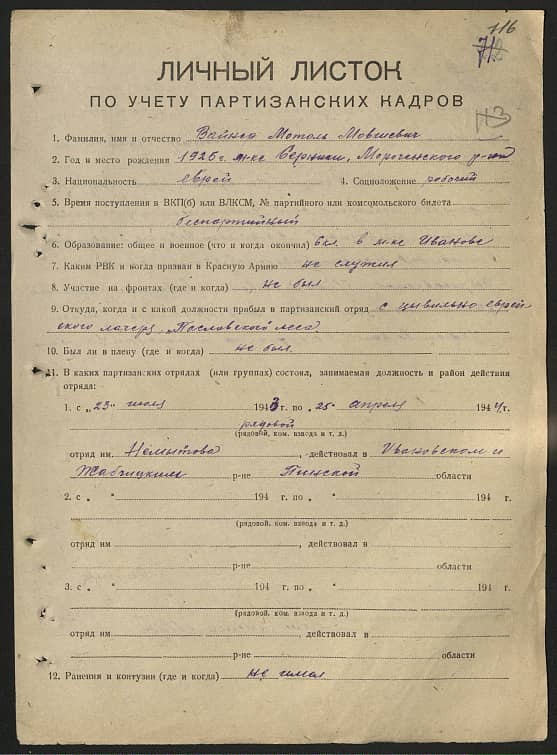 116
ЛИЧНЫЙ ЛИСТОК
ПО УЧЕТУ ПАРТИЗАНСКИХ КАДРОВ
1. Фамилия, имя и отчество Мотоль Мовшевич
2. Год и место рождения 1926 г. м-ко Серники, Мороченского р-на
3. Национальность еврей 4. Соцположение рабочий
5. Время поступления в ВКП(б) или ВЛКСМ, № партийного или комсомольского билета
беспартийный
6. Образование: общее и военное (что и когда окончил) 6 кл. в м-ке Иванове
7. Каким РВК и когда призван в Красную Армию не служил
8. Участие на фронтах (где и когда) не был
9. Откуда, когда и с какой должности прибыл в партизанский отряд с цивильно еврей
ского лагеря, леса
10. Был ли в плену (где и когда) не был
11. В каких партизанских отрядах (или группах) состоял, занимаемая должность и район действия
отряда:
1. с „23" июля 1943 г. по „25" апреля 1944 г.
рядовой
(рядовой, ком. взвода и т. д.)
отряд им Немытова, действовал в Ивановском и
Жабчицким р-не Пинской области
2. с „ " 194 г. по „ " 194 г.
(рядовой, ком. взвода и т. д.)
отряд им , действовал в
р-не области
3. с „ " 194 г. по „ " 194 г.
(рядовой, ком. взвода и т. д.)
отряд им , действовал в
р-не области
12. Ранения и контузии (где и когда) не имел